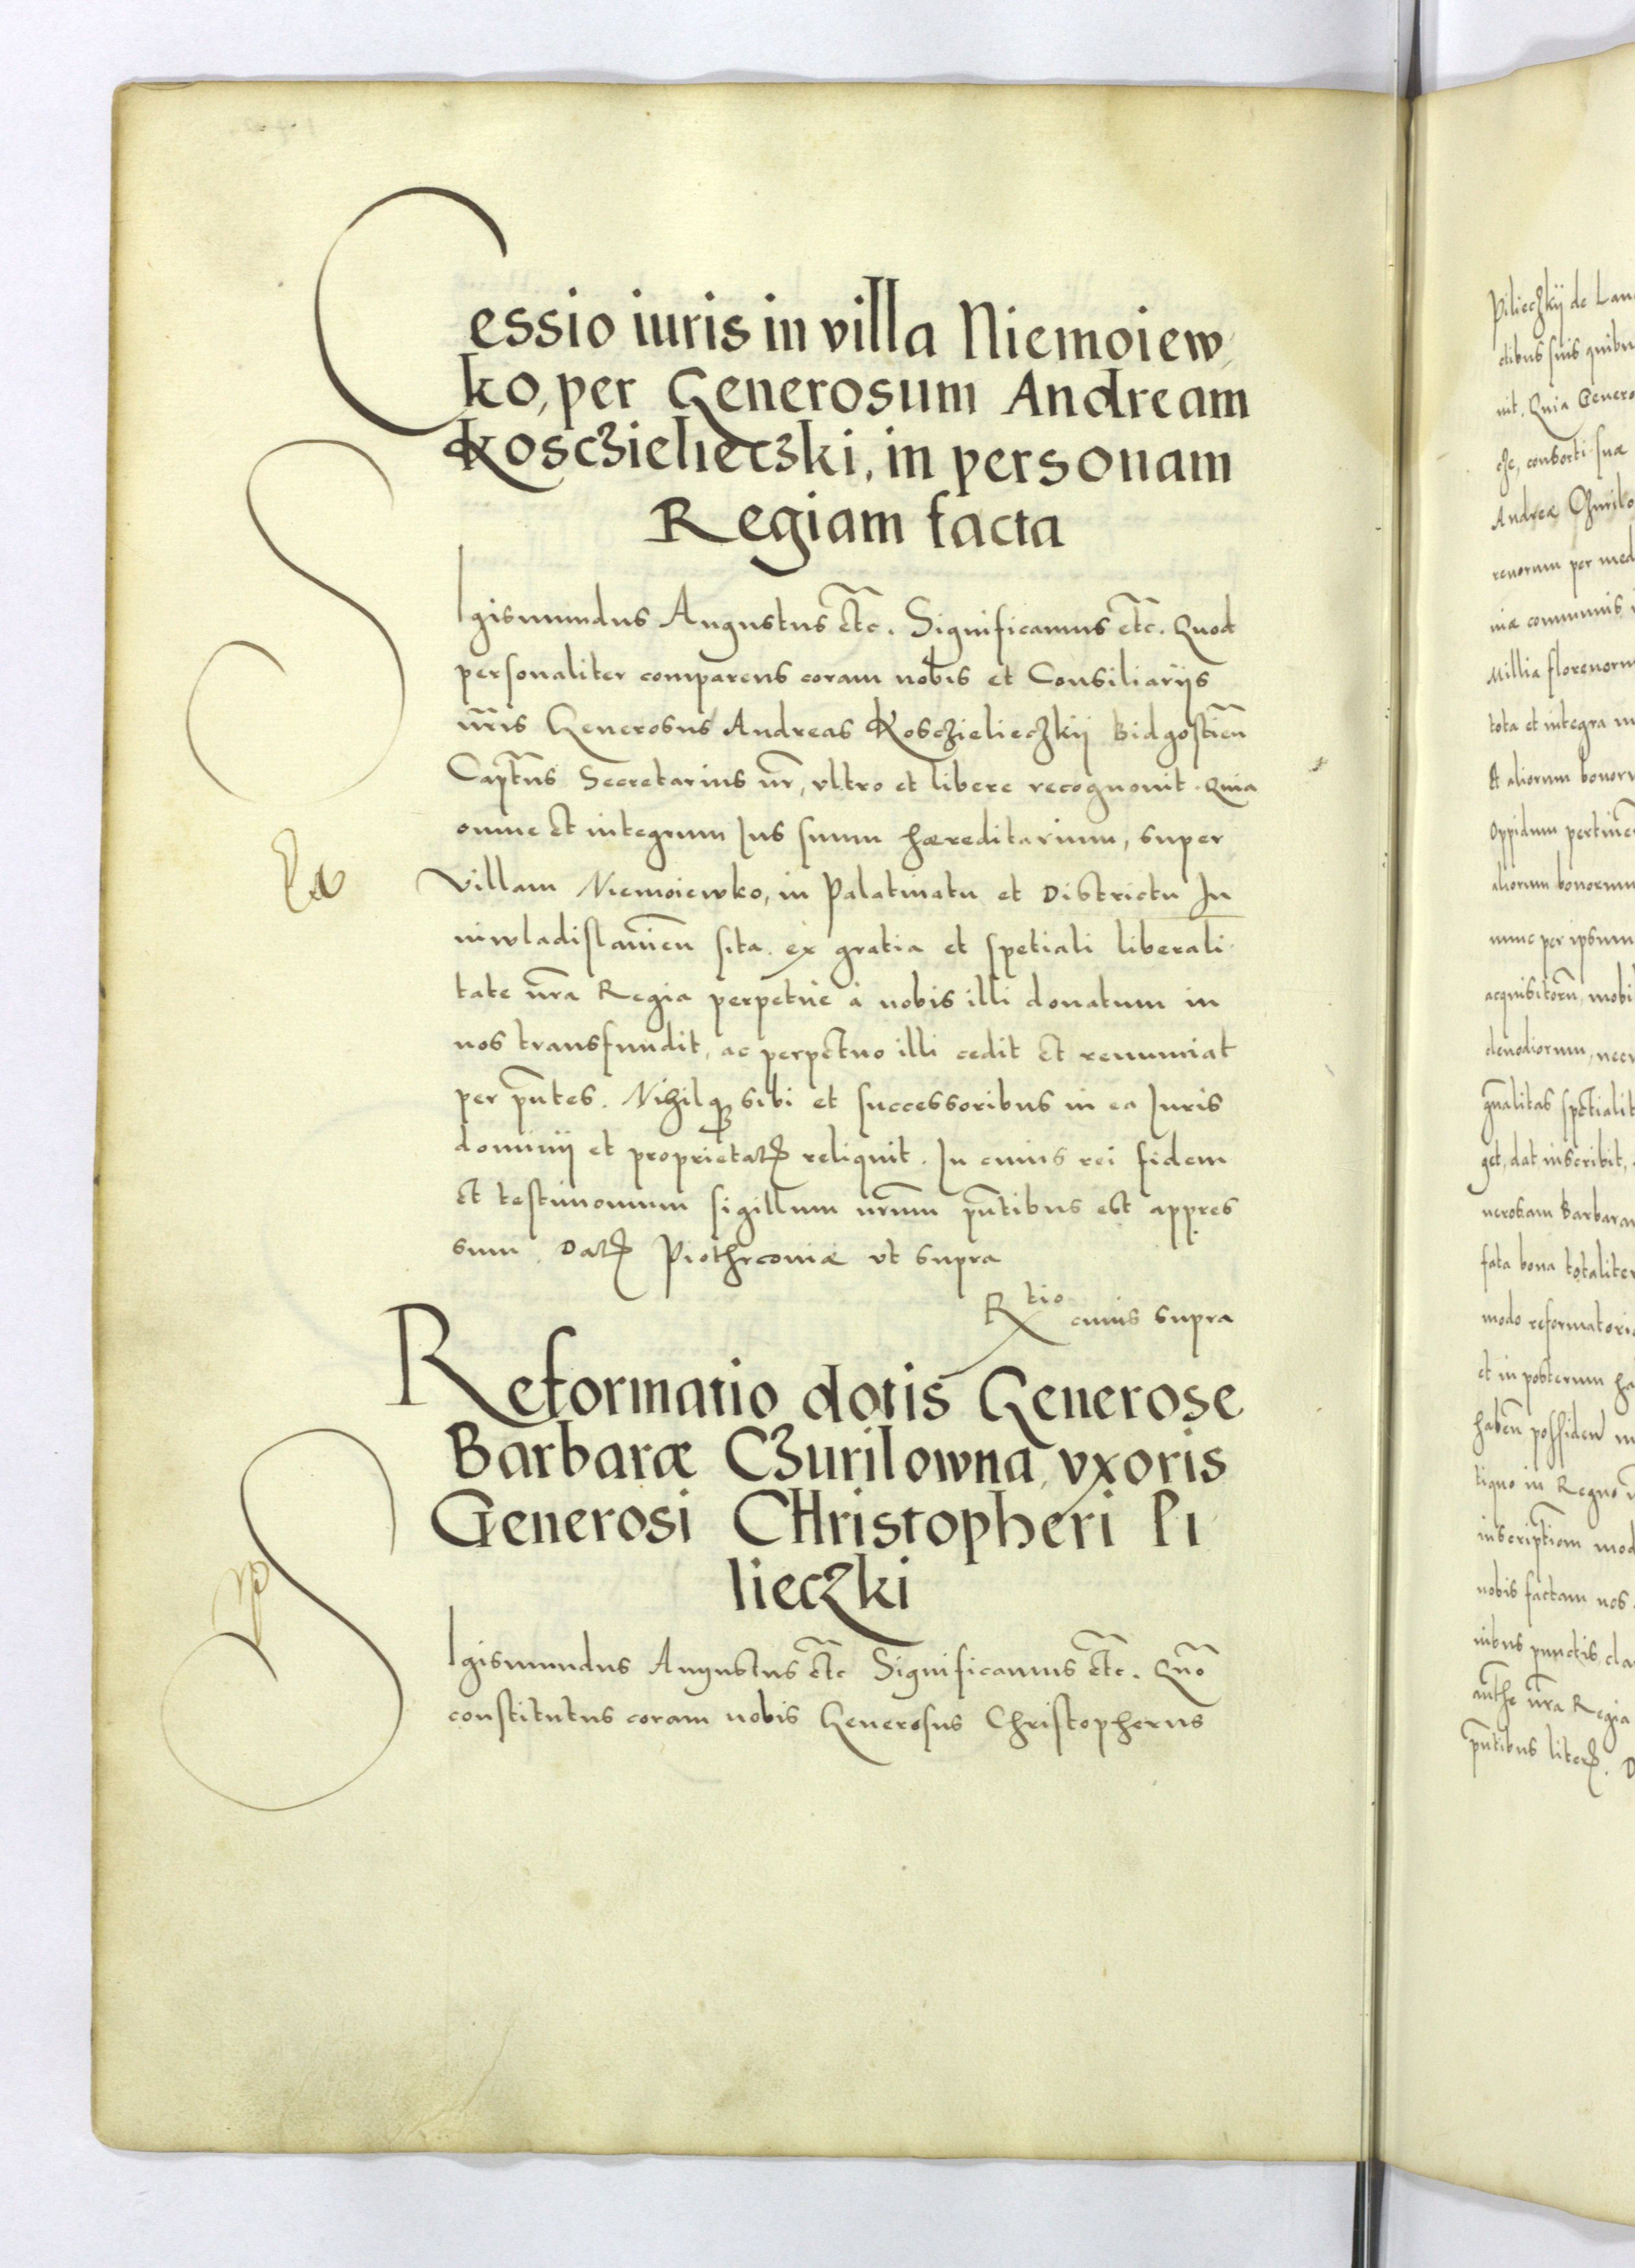 Cessio iuris in villa Niemoiew
ko, per Generosum Andream
Kosczielieczki, in personam
Regiam facta
SIgismundus Augustus etc̃. Significamus etc̃. Quod
personaliter comparens coram nobis et Consiliarijs
nr̃is Generosus Andreas Kosczielieczkij Bidgostien̄
Capt̃us Secretarius nr̃, vltro et libere recognouit. Quia
omne et integrum Ius suum hæreditarium, super
Villam Niemoiewko, in Palatinatu et Districtu Iu
niwladislauien̄ sita. ex gratia et spetiali liberali
tate nr̃a Regia perpetuè à nobis illi donatum in
nos transfundit, ac perpetuo illi cedit et renunciat
per pn̄tes. Nihilqꝫ sibi et successoribus in ea Iuris
dominij et proprietatꝭ reliquit. In cuius rei fidem
et testimonium sigillum nr̃um pn̄tibus est appres
sum. Datꝭ Piothrcoviæ vt supra
R^tio cuius supra
Reformatio dotis Generose
Barbaræ Czurilowna, vxoris
Generosi CHristopheri Pi
lieczki
SIgismundus Augustus etc̃ Significamus etc̃. Quō
constitutus coram nobis Generosus Christopherus
Pilieczkij de Lan
nit. Quia Genero
che, consorti suæ
Andreæ Czurilo
renorum per med
niæ communis
Millia florenoru
tota et integra
Et aliorum bonoru
Oppidum pertinen
aliorum bonorum
nunc per ipsum
acquisitorū, mobi
get, dat inscribit,
nerosam Barbaram
fata bona totaliter
modo reformatorio
et in posterum ha
tiquo in Regno
inscriptiom mod
nobis factam nos
nibus punctis cla
nr̃a Regia
pn̄tibus literꝭ. D